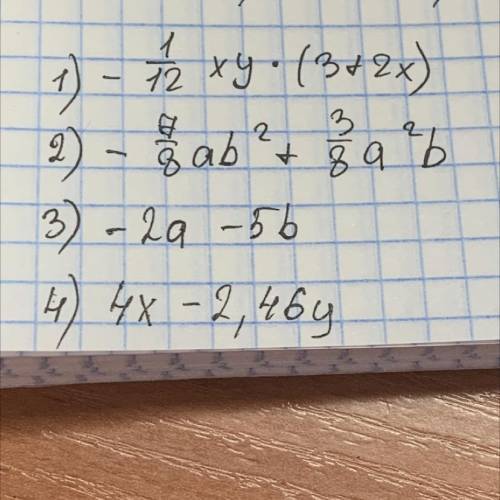 1) - 1/12 xy · (3+2x)
2) - 7/8 ab² + 3/8 a²b
3) - 2a - 5b
4) 4x - 2,46y